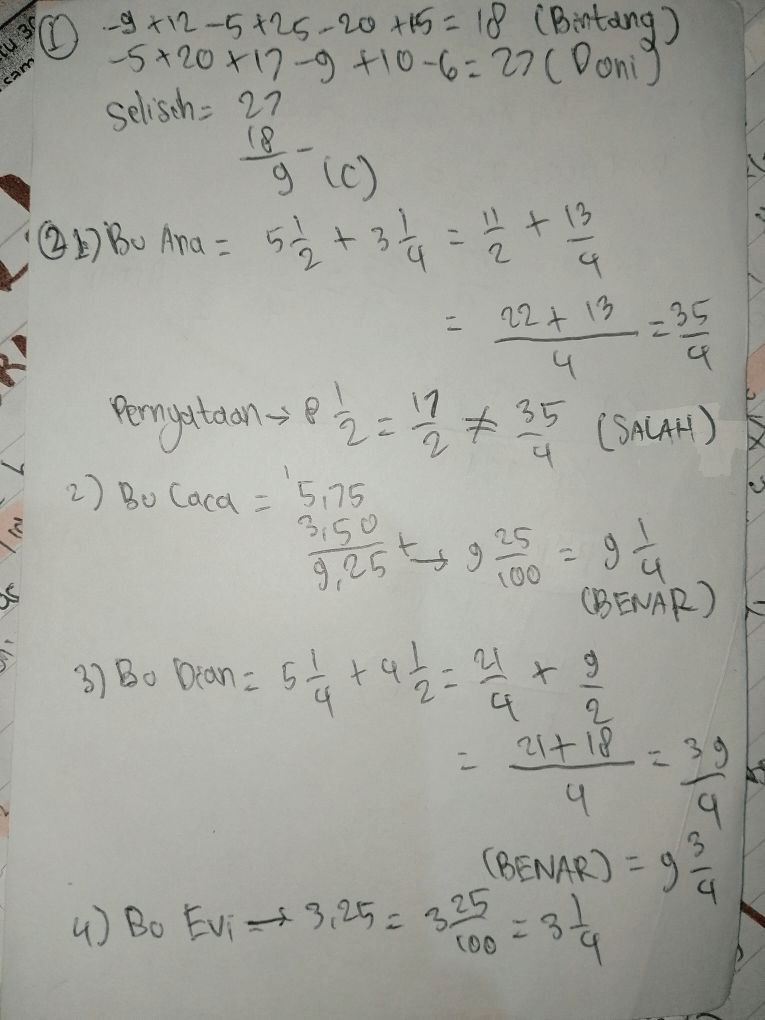 ① -9 + 12 - 5 + 25 - 20 + 15 = 18 (Bintang)
-5 + 20 + 17 - 9 + 10 - 6 = 27 (Doni)
Selisih = 27
18 -
9 (C)
② 1) Bu Ana = 5 1/2 + 3 1/4 = 11/2 + 13/4
= 22 + 13 / 4 = 35/4
Pernyataan → 8 1/2 = 17/2 ≠ 35/4 (SALAH)
2) Bu Caca = 5,75
3,50 +
9,25 → 9 25/100 = 9 1/4
(BENAR)
3) Bu Dian = 5 1/4 + 4 1/2 = 21/4 + 9/2
= 21 + 18 / 4 = 39/4
(BENAR) = 9 3/4
4) Bu Evi → 3,25 = 3 25/100 = 3 1/4